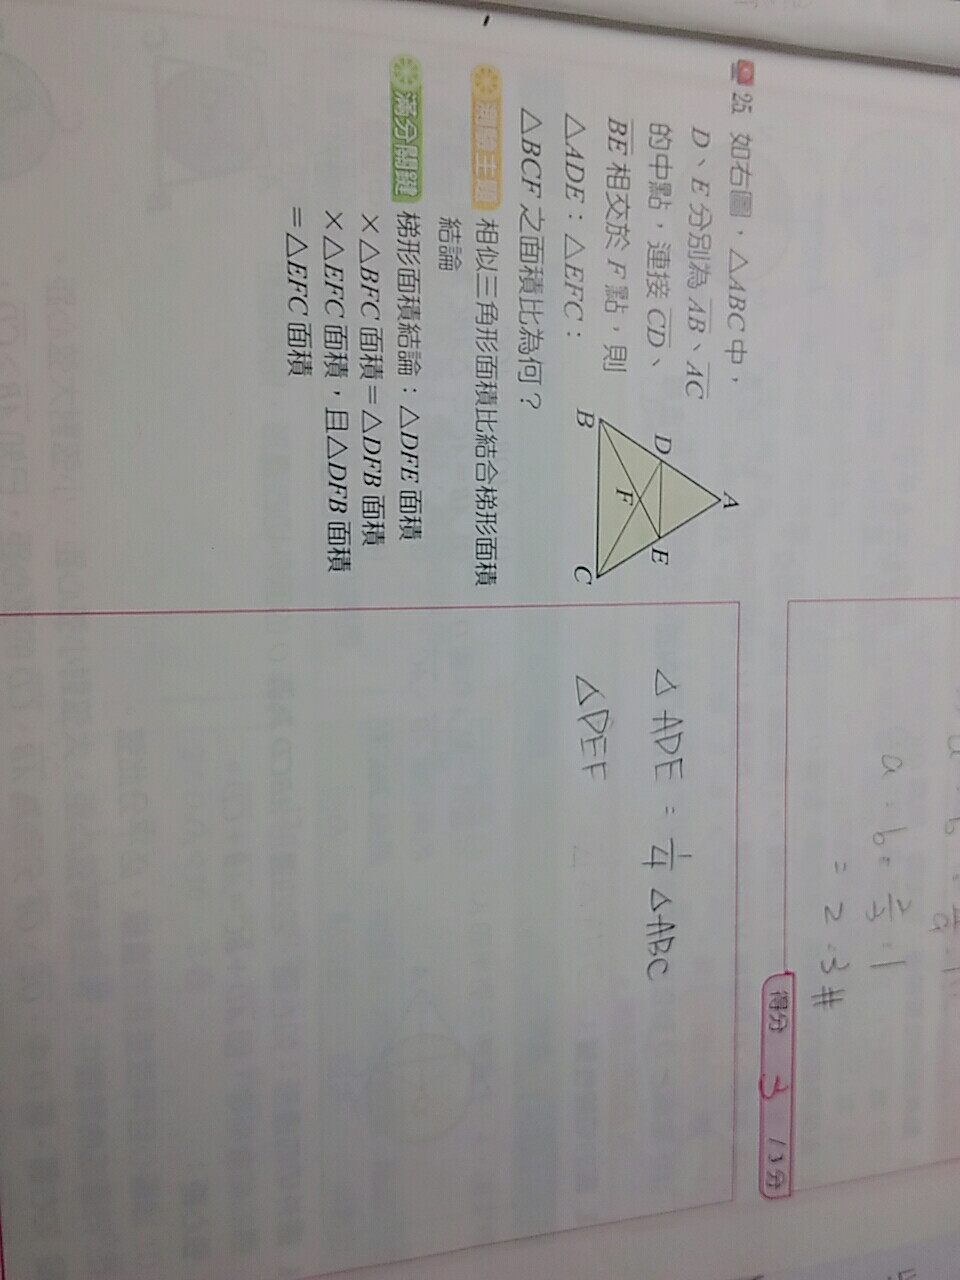 25. 如右圖，△ABC 中，
D、E 分別為 AB、AC
的中點，連接 CD、
BE 相交於 F 點，則
△ADE：△EFC：
△BCF 之面積比為何？
A
D
E
F
B
C
測驗主題 相似三角形面積比結合梯形面積
結論
滿分關鍵 梯形面積結論：△DFE 面積
×△BFC 面積＝△DFB 面積
×△EFC 面積，且△DFB 面積
＝△EFC 面積
a : b = 2/3 : 1
= 2 : 3 #
得分 3 /3分
△ADE = 1/4 △ABC
△DEF